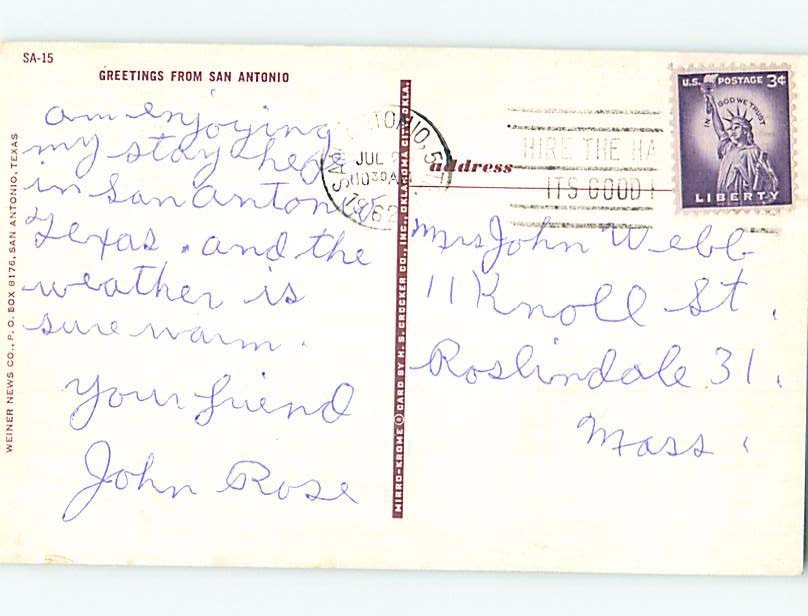 SA-15
GREETINGS FROM SAN ANTONIO
am enjoying
my stay here
in San Antonio
Texas. and the
weather is
sure warm.
Your friend
John Rose
WEINER NEWS CO., P. O. BOX 8176, SAN ANTONIO, TEXAS
MIRRO-KROME ® CARD BY H. S. CROCKER CO., INC., OKLAHOMA CITY, OKLA.
SAN ANTONIO,
JUL
1030AM
1962
HIRE THE HA
ITS GOOD
U.S. POSTAGE 3¢
IN GOD WE TRUST
LIBERTY
address
Mrs John Webb
11 Knoll St.
Roslindale 31.
Mass.